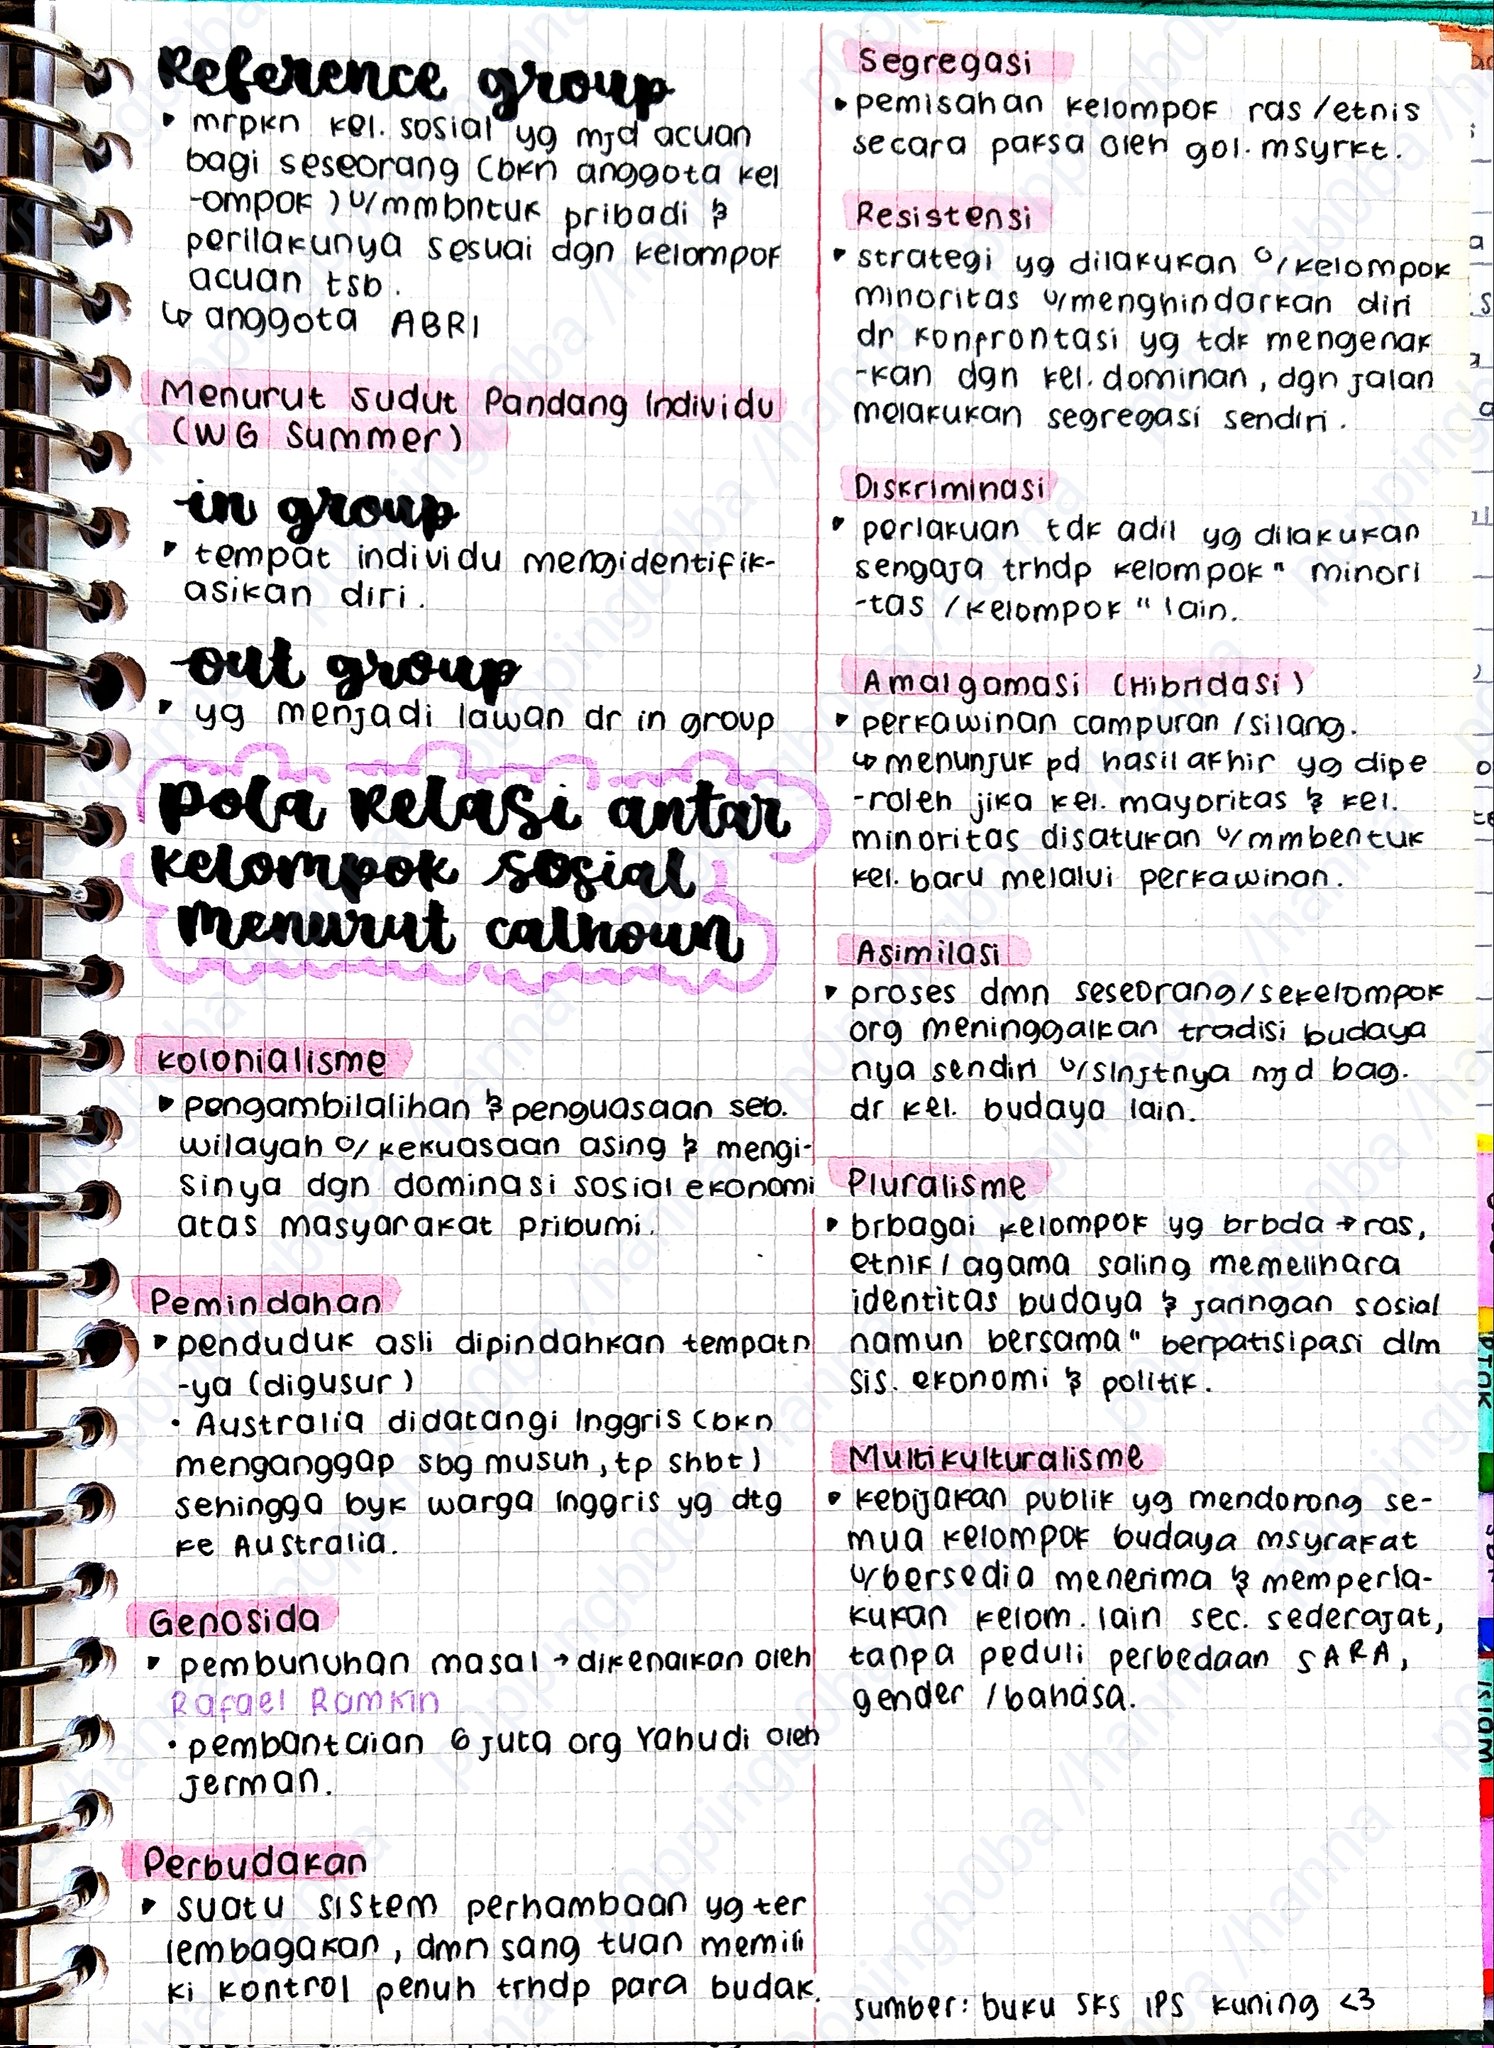 Reference group
▸ mrpkn kel. sosial yg mjd acuan
bagi seseorang (bkn anggota kel
-ompok) u/mmbntuk pribadi &
perilakunya sesuai dgn kelompok
acuan tsb.
↳ anggota ABRI
Menurut Sudut Pandang Individu
(WG Summer)
in group
▸ tempat individu mengidentifik-
asikan diri.
out group
▸ yg menjadi lawan dr in group
Pola Relasi antar
kelompok sosial
menurut calhoun
Kolonialisme
▸ pengambilalihan & penguasaan seb.
wilayah o/ kekuasaan asing & mengi-
sinya dgn dominasi sosial ekonomi
atas masyarakat pribumi.
Pemindahan
▸ penduduk asli dipindahkan tempatn
-ya (digusur)
• Australia didatangi Inggris (bkn
menganggap sbg musuh, tp shbt)
sehingga byk warga Inggris yg dtg
ke Australia.
Genosida
▸ pembunuhan masal → dikenalkan oleh
Rafael Ramkin
• pembantaian 6 juta org Yahudi oleh
jerman.
Perbudakan
▸ suatu sistem perhambaan yg ter
lembagakan, dmn sang tuan memili
ki kontrol penuh trhdp para budak.
Segregasi
▸ pemisahan kelompok ras/etnis
secara paksa oleh gol. msyrkt.
Resistensi
▸ strategi yg dilakukan o/kelompok
minoritas u/menghindarkan diri
dr konfrontasi yg tdk mengenak
-kan dgn kel. dominan, dgn jalan
melakukan segregasi sendiri.
Diskriminasi
▸ perlakuan tdk adil yg dilakukan
sengaja trhdp kelompok" minori
-tas /kelompok" lain.
Amalgamasi (Hibridasi)
▸ perkawinan campuran /silang.
↳ menunjuk pd hasil akhir yg dipe
-roleh jika kel. mayoritas & kel.
minoritas disatukan u/mmbentuk
kel. baru melalui perkawinan.
Asimilasi
▸ proses dmn seseorang/sekelompok
org meninggalkan tradisi budaya
nya sendiri u/slnjtnya mjd bag.
dr kel. budaya lain.
Pluralisme
▸ brbagai kelompok yg brbda → ras,
etnik/ agama saling memelihara
identitas budaya & jaringan sosial
namun bersama" berpatisipasi dlm
sis. ekonomi & politik.
Multikulturalisme
▸ kebijakan publik yg mendorong se-
mua kelompok budaya msyrakat
u/bersedia menerima & memperla-
kukan kelom. lain sec. sederajat,
tanpa peduli perbedaan SARA,
gender /bahasa.
sumber: buku SKS IPS kuning <3